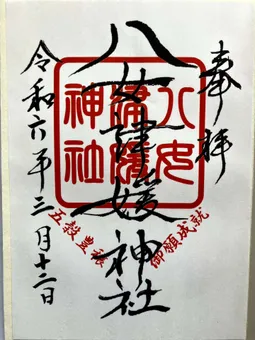 奉拝
八女津媛神社
八女津媛神社
令和六年三月十二日
御願成就
五穀豊穣